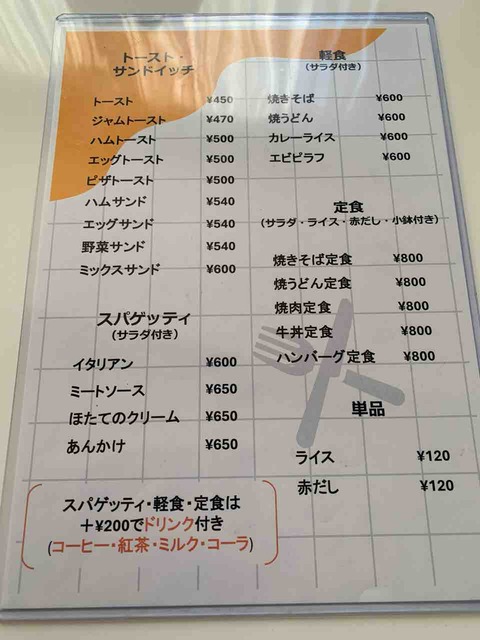 トースト・
サンドイッチ
トースト ¥450
ジャムトースト ¥470
ハムトースト ¥500
エッグトースト ¥500
ピザトースト ¥500
ハムサンド ¥540
エッグサンド ¥540
野菜サンド ¥540
ミックスサンド ¥600
スパゲッティ
(サラダ付き)
イタリアン ¥600
ミートソース ¥650
ほたてのクリーム ¥650
あんかけ ¥650
スパゲッティ・軽食・定食は
+¥200でドリンク付き
(コーヒー・紅茶・ミルク・コーラ)
軽食
(サラダ付き)
焼きそば ¥600
焼うどん ¥600
カレーライス ¥600
エビピラフ ¥600
定食
(サラダ・ライス・赤だし・小鉢付き)
焼きそば定食 ¥800
焼うどん定食 ¥800
焼肉定食 ¥800
牛丼定食 ¥800
ハンバーグ定食 ¥800
単品
ライス ¥120
赤だし ¥120